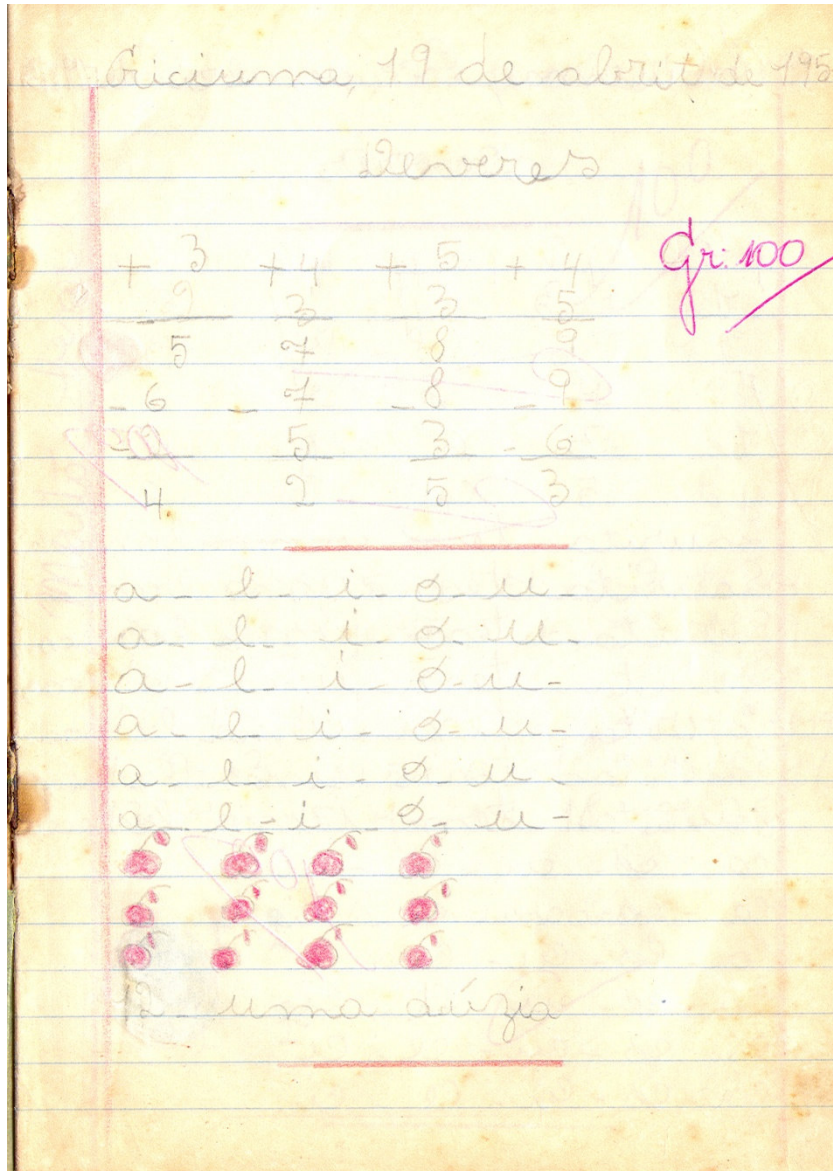 Criciuma, 19 de abrit de 195
Deveres
Gr. 100
+ 3 +4 + 5 + 4
2 3 3 5
5 7 8 9
- 6 - 7 - 8 - 9
5 3 - 6
4. 2 5 3
a - e - i - o - u -
a - e - i - o - u -
a - e - i - o - u -
a - e - i - o - u -
a - e - i - o - u -
a - e - i - o - u -
12 - uma dúzia